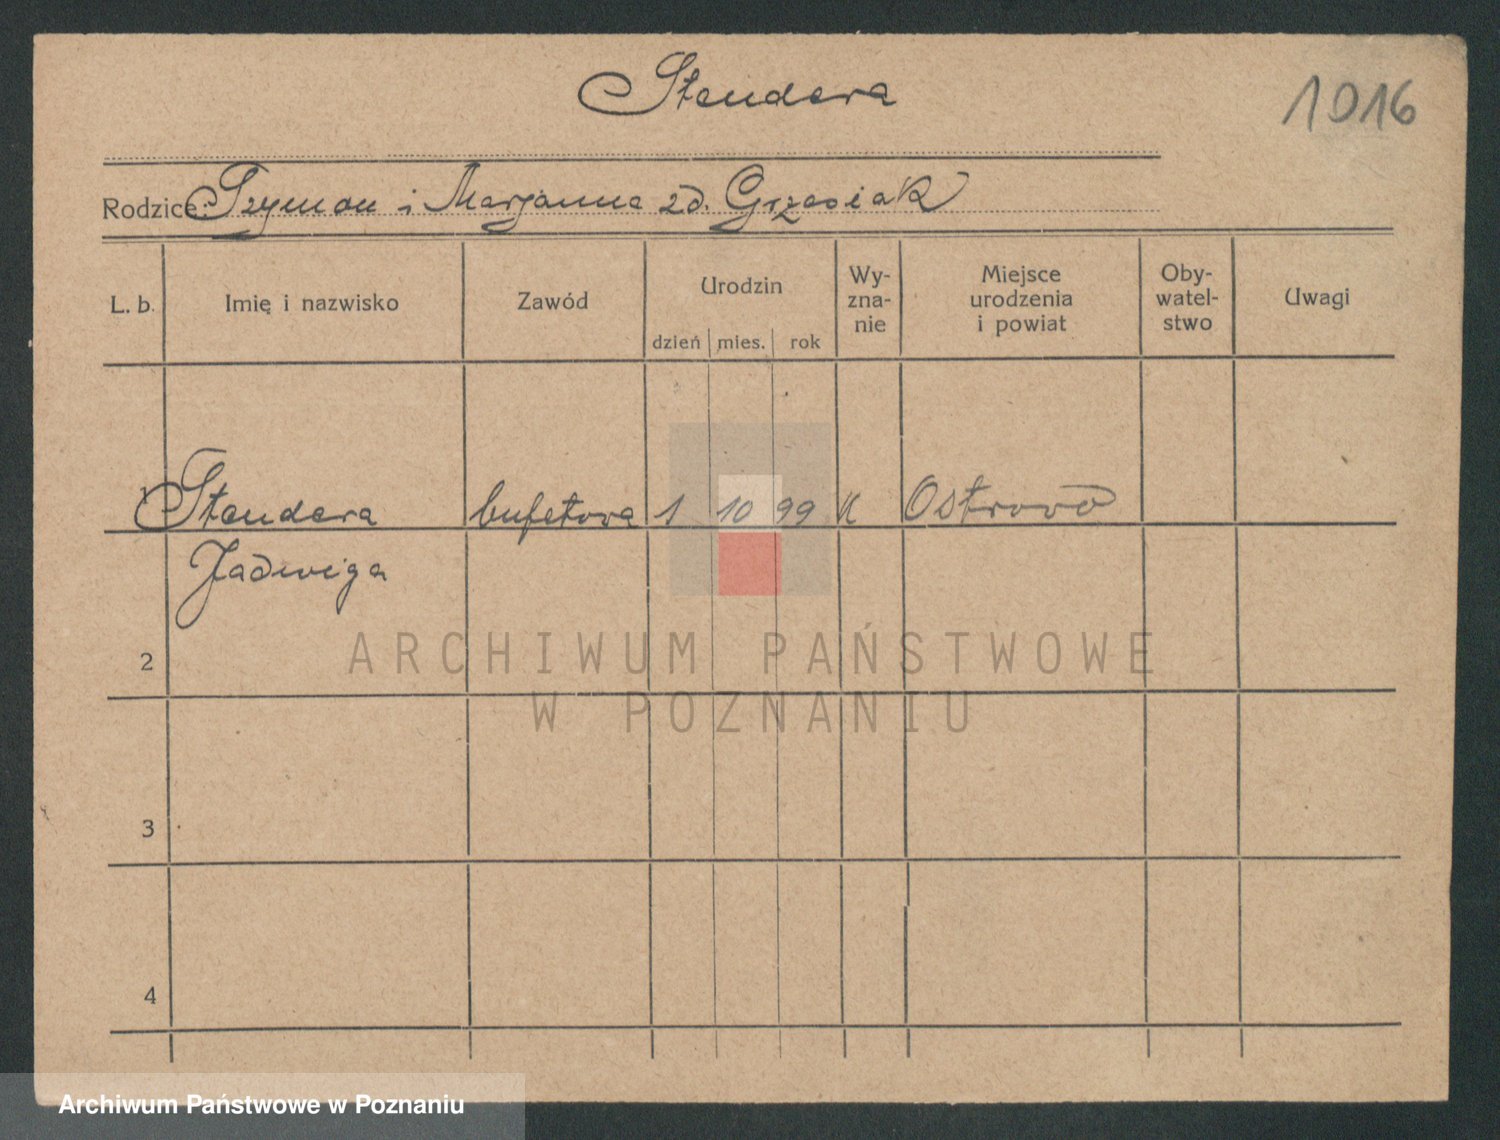 Stendera
1016
Rodzice: Szymon i Marjanna zd. Grzesiak
L. b. Imię i nazwisko Zawód Urodzin dzień mies. rok Wy-zna-nie Miejsce urodzenia i powiat Oby-watel-stwo Uwagi
1 Stendera bufetowa 1 10 99 K Ostrowo
Jadwiga
2
ARCHIWUM PAŃSTWOWE
W POZNANIU
3
4
Archiwum Państwowe w Poznaniu